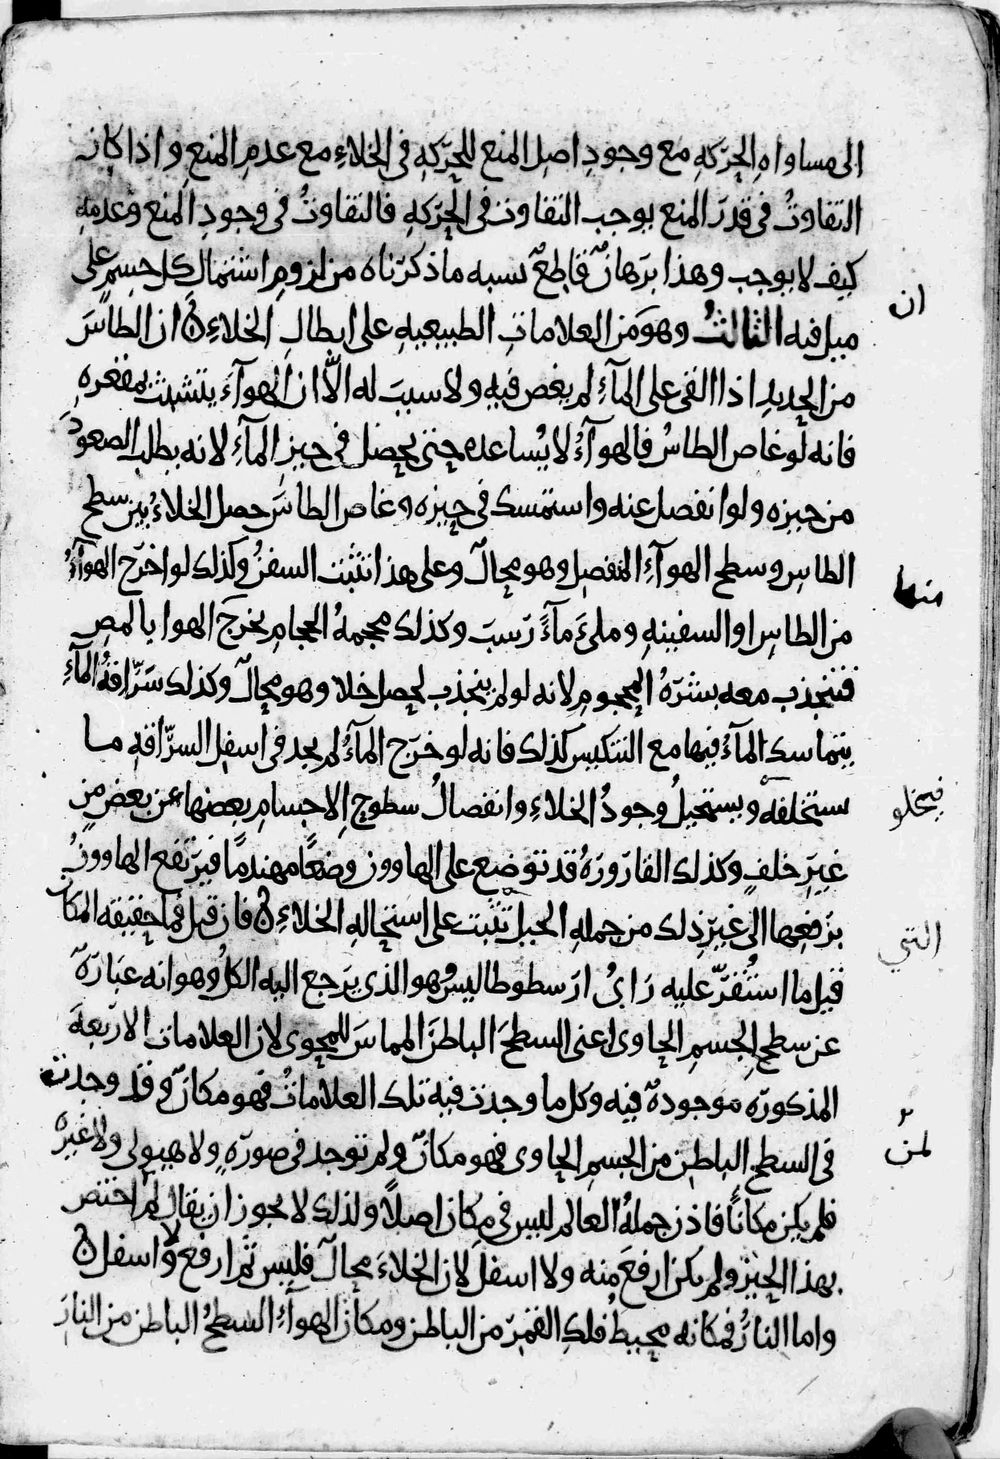 الى مساواة الحركة مع وجود اصل المنع للحركة في الخلاء مع عدم المنع واذا كان
التفاوت في قدر المنع يوجب التفاوت في الحركة فالتفاوت في وجود المنع وعدمه
كيف لا يوجب وهذا برهان قاطع نسبه ما ذكرناه من لزوم اشتمال كل جسم على
ميل فيه الثالث وهو من العلامات الطبيعية على ابطال الخلاء ان الطاس
ان
من الحديد اذا القى على الماء لم يغص فيه ولا سبب له الا ان الهوآء يتشبث بمقعره
فانه لو غاص الطاس فالهوآء لا يساعده حتى يحصل في حيز المآء لانه يطلب الصعود
من حيزه ولو انفصل عنه واستمسك في حيزه وغاص الطاس حصل الخلاء بين سطح
الطاس وسطح الهوآء المنفصل وهو محال وعلى هذا تثبت السفن وكذلك لو اخرج الهوآء
منها
من الطاس او السفينه وملئ مآء رسب وكذلك محجمة الحجام يخرج الهوا بالمص
فتنجذب معه بشرة المحجوم لانه لو لم ينجذب لحصل خلا وهو محال وكذلك سراقة المآء
يتماسك المآء فيها مع التنكيس كذلك فانه لو خرج المآء لم يجد في اسفل السراقة ما
يستخلفه ويستحيل وجود الخلاء وانفصال سطوح الاجسام بعضها عن بعض من
فيخلو
غير خلف وكذلك القارورة قد توضع على الهاوون وضعا مهندما فيرتفع الهاوون
برفعها الى غير ذلك من جملة الحيل تثبت على استحالة الخلاء فان قيل فما حقيقه المكان
التي
قيل ما استقر عليه راى ارسطوطاليس هو الذى يرجع اليه الكل وهو انه عبارة
عن سطح الجسم الحاوى اعنى السطح الباطن المماس للمحوى لان العلامات الاربعة
المذكوره موجودة فيه وكل ما وجدت فيه تلك العلامات فهو مكان وقد وجدت
في السطح الباطن من الجسم الحاوى فهو مكان ولم توجد في صورة ولا هيولى ولا غيره
لمن
فلم يكن مكانا فاذن جملة العالم ليس في مكان اصلا ولذلك لا يجوز ان يقال لم اختص
بهذا الحيز ولم يكن ارفع منه ولا اسفل لان الخلاء محال فليس ثم ارفع ولا اسفل
واما النار فمكانه محيط فلك القمر من الباطن ومكان الهوآء السطح الباطن من النار